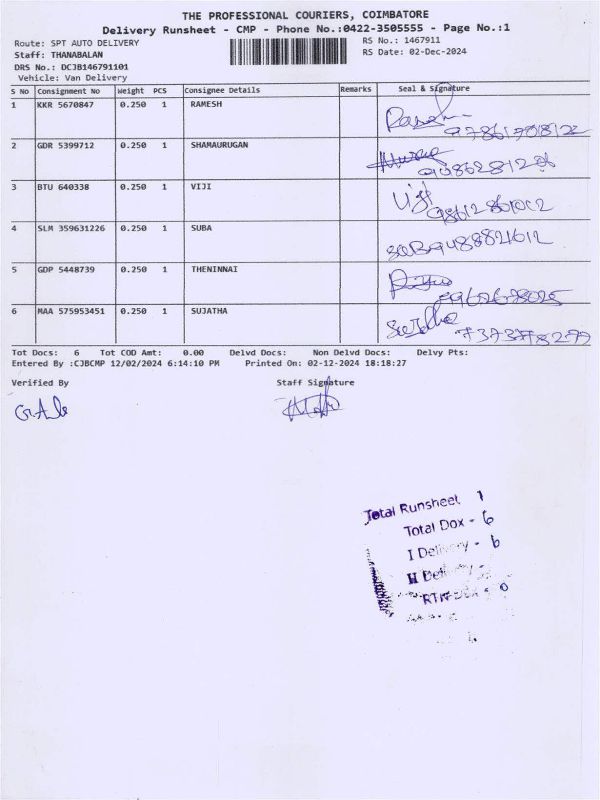 THE PROFESSIONAL COURIERS, COIMBATORE
Delivery Runsheet - CMP - Phone No.:0422-3505555 - Page No.:1
Route: SPT AUTO DELIVERY
RS No.: 1467911
Staff: THANABALAN
RS Date: 02-Dec-2024
DRS No.: DCJB146791101
Vehicle: Van Delivery
S No Consignment No Weight PCS Consignee Details Remarks Seal & Signature
1 KKR 5670847 0.250 1 RAMESH
2 GDR 5399712 0.250 1 SHAMAURUGAN
3 BTU 640338 0.250 1 VIJI
Viji
4 SLM 359631226 0.250 1 SUBA
9488821612
5 GDP 5448739 0.250 1 THENINNAI
6 MAA 575953451 0.250 1 SUJATHA
Tot Docs: 6 Tot COD Amt: 0.00 Delvd Docs: Non Delvd Docs: Delvy Pts:
Entered By :CJBCMP 12/02/2024 6:14:10 PM Printed On: 02-12-2024 18:18:27
Verified By Staff Signature
Total Runsheet 1
Total Dox - 6
I Delivery - 6
II